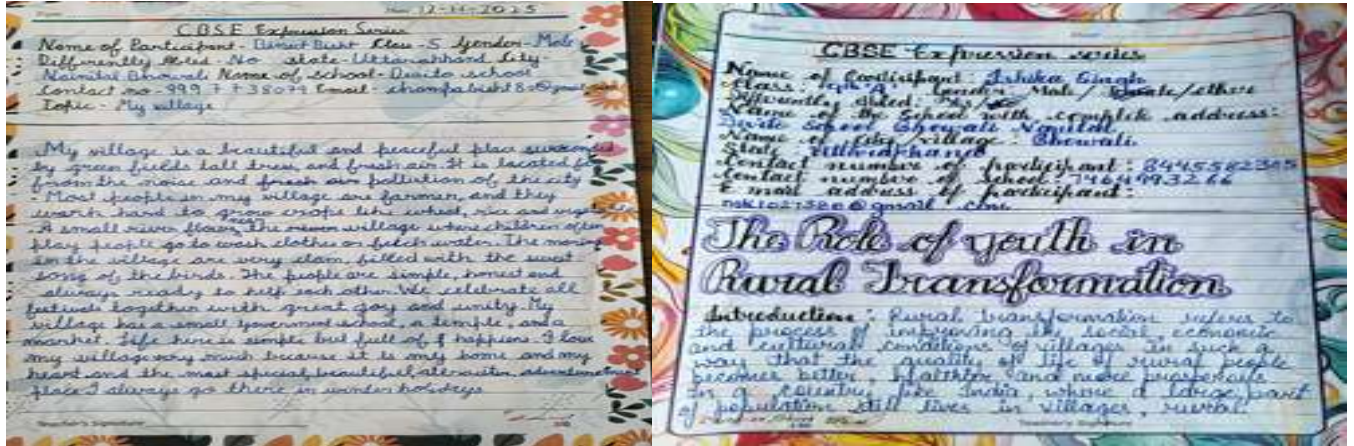 Date 12-11-2025
CBSE Expression Series
Name of Participant - Bisht Class - 5 Gender - Male
Differently Abled - No State - Uttarakhand City -
Nainital Bhowali Name of school - school
Contact no - Email -
Topic - My village
My village is a beautiful and peaceful place surrounded
by green fields tall trees and fresh air It is located far
from the noise and pollution of the city
. Most people in my village are farmers, and they
work hard to grow crops like wheat, rice and
. A small river flows The village where children often
play people go to wash clothes or fetch water. The
in the village are very, filled with the sweet
song of the birds. The people are simple, honest and
always ready to help each other. We celebrate all
together with great joy and unity. My
village has a small government school, a temple, and a
market. Life here is simple but full of I love
my village very much because it is my home and my
heart and the most special, beautiful
place I always go there in winter holidays
Teacher's Signature
CBSE Expression series
Name of Participant: Ishika Singh
Class: Gender: Male / /other
Differently Abled:
Name of the School with complete address:
School Bhowali Nainital
Name of City/village: Bhowali
State
Contact number of participant: 8445582305
Contact number of School:
E-mail address of participant:
The Role of youth in
Rural Transformation
Introduction: Rural transformation referes to
the process of improving the social economic
and cultural conditions of villages in such a
way that the quality of life of rural people
becomes better, healthier and more prosperous
In a country like India, where a large part
of population still lives in villages, rural
Teacher's Signature